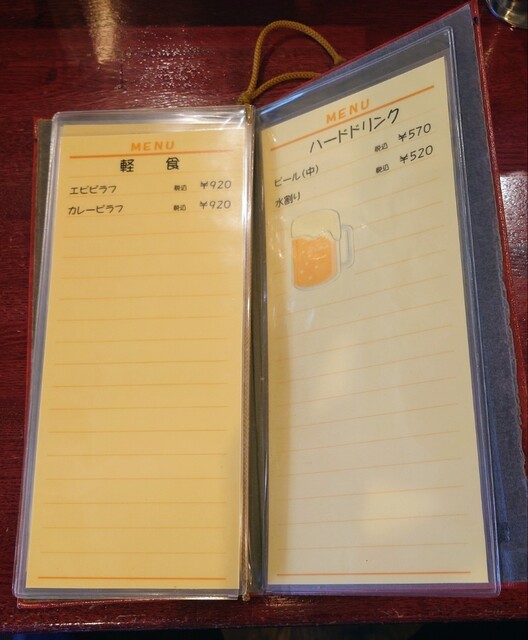 MENU
軽 食
エビピラフ 税込 ¥920
カレーピラフ 税込 ¥920
MENU
ハードドリンク
ビール(中) 税込 ¥570
水割り 税込 ¥520